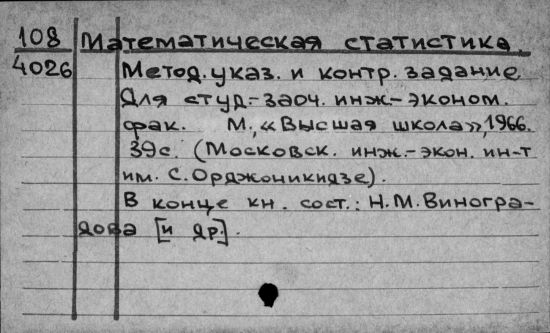 108 Математическая статистика.
4026 Метод. указ. и контр. задание
для студ.-заоч. инж.-эконом.
фак. М., «Высшая школа», 1966.
39с. (Московск. инж.-экон. ин-т
им. С. Орджоникидзе).
В конце кн. сост.: Н.М. Виногра-
дова [и др.].